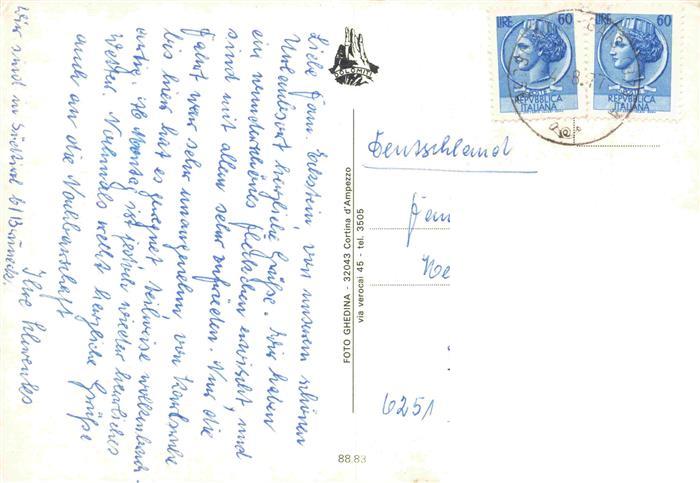 Liebe Fam. Eckstein, von unserem schönen
Urlaubsort herzliche Grüße. Wir haben
ein wunderschönes Fleckchen erwischt und
sind mit allem sehr zufrieden. Nur die
Fahrt war sehr unangenehm, von Karlsruhe
bis hier hat es geregnet, teilweise wolkenbruch-
artig. Ab Montag ist jedoch wieder herrliches
Wetter. Nochmals recht herzliche Grüße
auch an die Nachbarschaft
Ihre
Wir sind in Südtirol b/Bruneck.
DOLOMITI
FOTO GHEDINA - 32043 Cortina d'Ampezzo
via verocai 45 - tel. 3505
88.83
LIRE 60
REPVBBLICA
ITALIANA
LIRE 60
REPVBBLICA
ITALIANA
Deutschland
Fam
6251